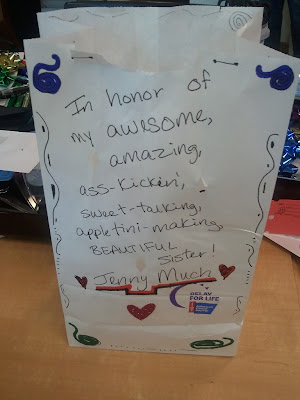 In honor of
my awesome,
amazing,
ass-kicken',
sweet-talking,
appletini-making,
BEAUTIFUL
sister!
Jenny Much
RELAY
FOR LIFE